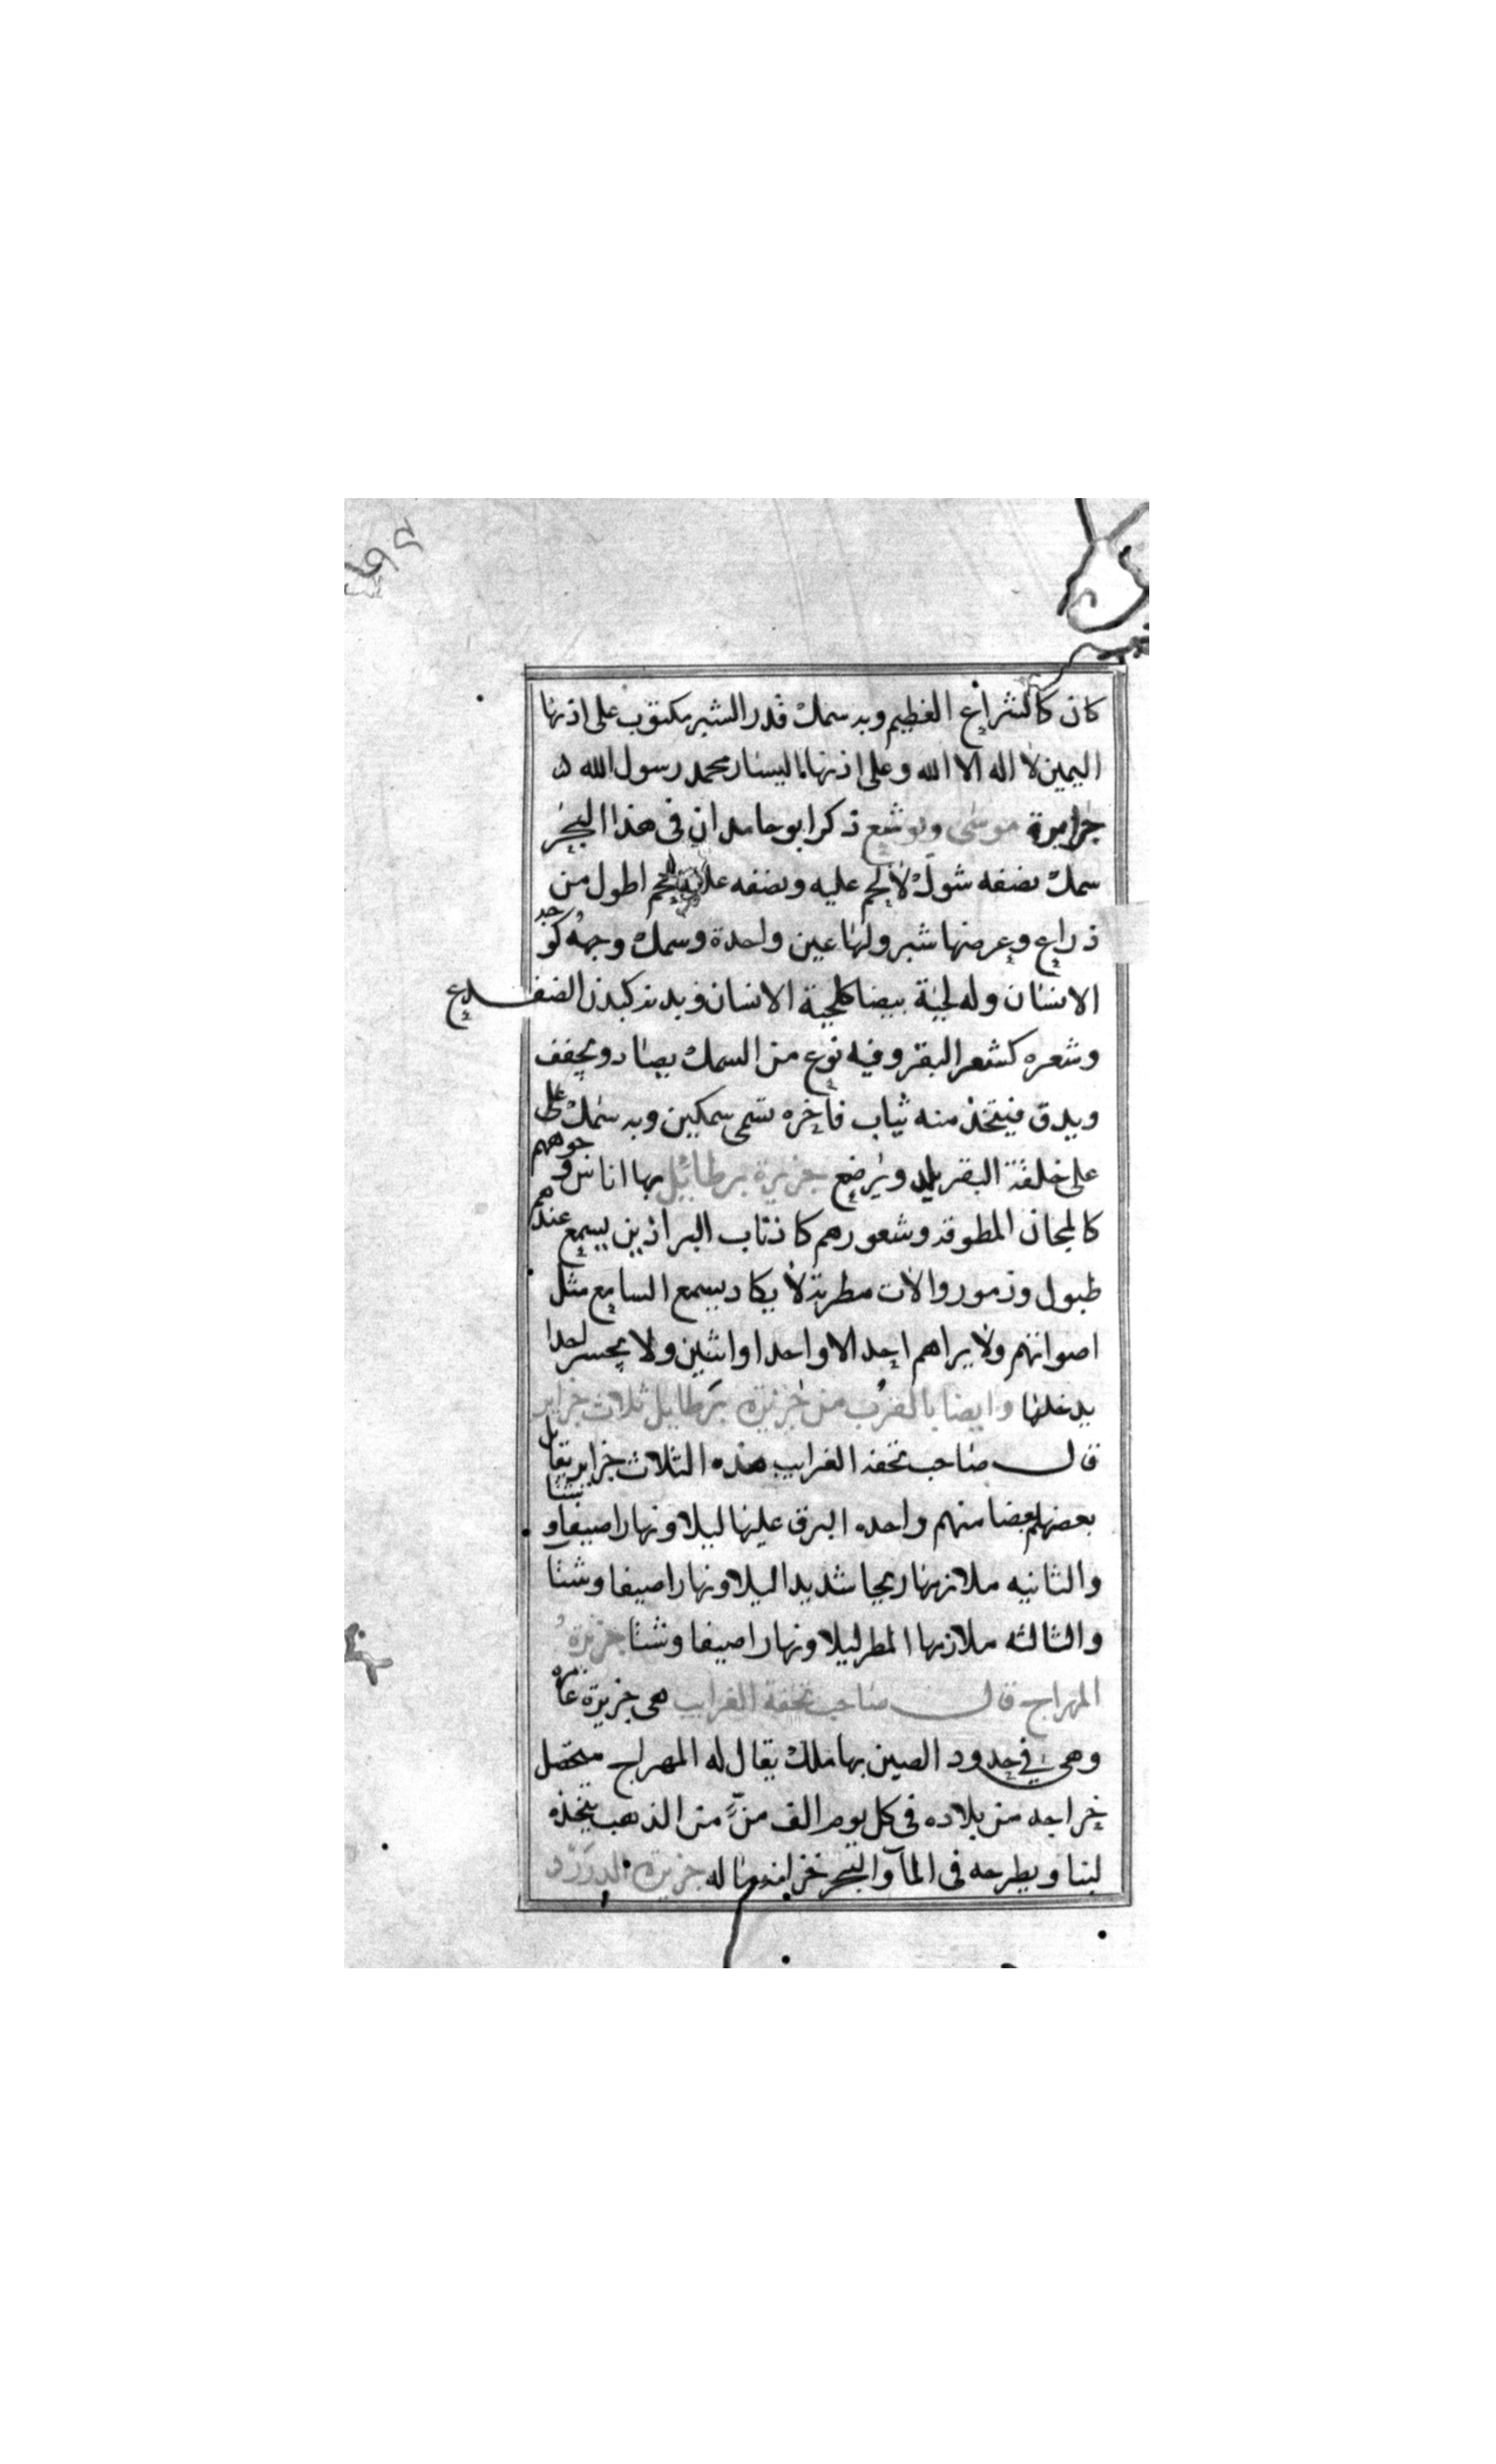 كان كالشراع العظيم وبه سمك قدر الشبر مكتوب على اذنها
اليمين لا اله الا الله وعلى اذنها اليسار محمد رسول الله
جزايرة موسى ويوشع ذكر ابو حامد ان في هذا البحر
سمك نصفه شوك لا لحم عليه ونصفه عليه لحم اطول من
ذراع وعرضها شبر ولها عين واحدة وسمك وجهه كوجه
الانسان وله لحية بيضا كلحية الانسان وبدنه كبدن الضفدع
وشعره كشعر البقر وفيه نوع من السمك يصاد ويجفف
ويدق فيتخذ منه ثياب فاخره تسمى سمكين وبه سمك على
على خلقة البقر يلد ويرضع جزيرة برطائيل بها اناس وجوههم
كالمجان المطوقه وشعورهم كاذناب البراذين يسمع عندهم
طبول وزمور والات مطربة لا يكاد يسمع السامع مثل
اصواتهم ولا يراهم احد الا واحدا او اثنين ولا يجسر احدا
يدخلها وايضا بالقرب من جزيره برطاييل ثلاث جزاير
قال صاحب تحفه الغرايب هذه الثلاث جزاير يقابل
بعضهم بعضا منهم واحده البرق عليها ليلا ونهارا صيفا وشتا
والثانيه ملازمها ريحا شديدا ليلا ونهارا صيفا وشتا
والثالثه ملازمها المطر ليلا ونهارا صيفا وشتا جزيرة
المهراج قال صاحب تحفة الغرايب هى جزيرة عامره
وهى في حدود الصين بها ملك يقال له المهراج متحصل
خراجه من بلاده في كل يوم الف منّ من الذهب يتخذه
لبنا ويطرحه في المآ والبحر خزانه ماله جزيرة